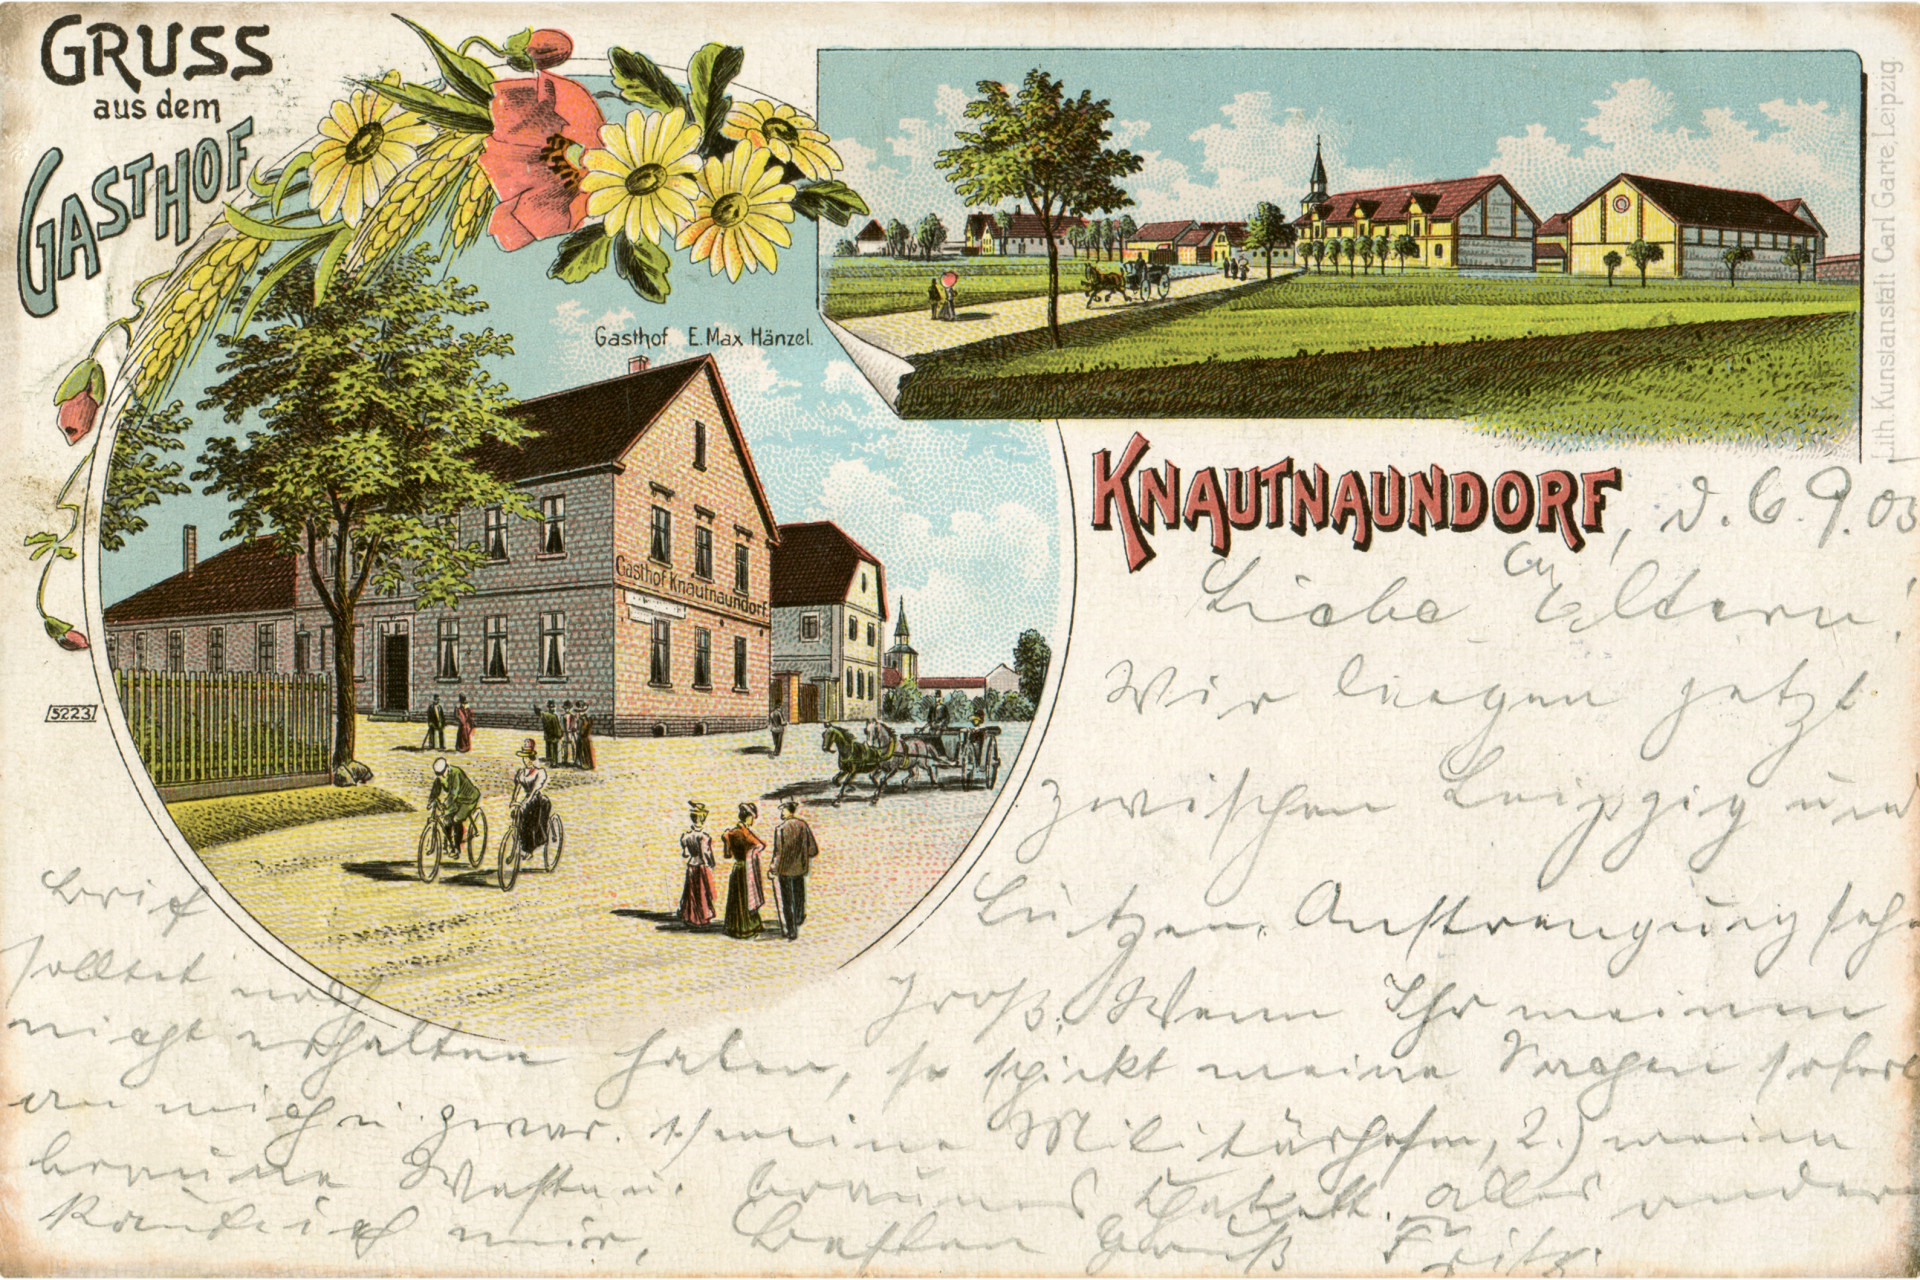 GRUSS
aus dem
GASTHOF
Gasthof E. Max Hänzel.
Gasthof Knautnaundorf
5223
Lith. Kunstanstalt Carl Garte, Leipzig.
KNAUTNAUNDORF, d. 6.9.03
Liebe Eltern!
Wir liegen jetzt
zwischen Leipzig und
Lützen. Anstrengung sehr
groß. Wenn Ihr meinen
Brief
solltet noch
nicht erhalten haben, so schickt meine Sachen sofort
an mich u. zwar. 1) meine Militärhosen, 2.) meine
braune Weste u. braunes Jakett. alles andere
kaufe ich mir. Besten Gruß Fritz.